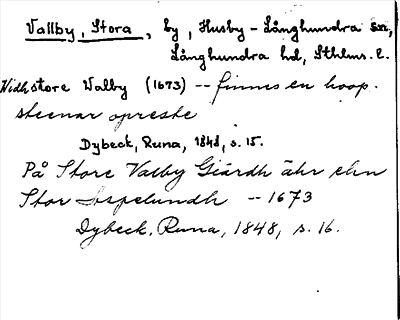 Vallby, Stora, by, Husby-Långhundra sn,
Långhundra hd, Sthlms. l.
Widh store Walby (1673) -- finnes en hoop
steenar opreste
Dybeck, Runa, 1848, s. 15.
På Store Valby Giärdh ähr ehn
Stor Aspelundh -- 1673
Dybeck, Runa, 1848, s. 16.